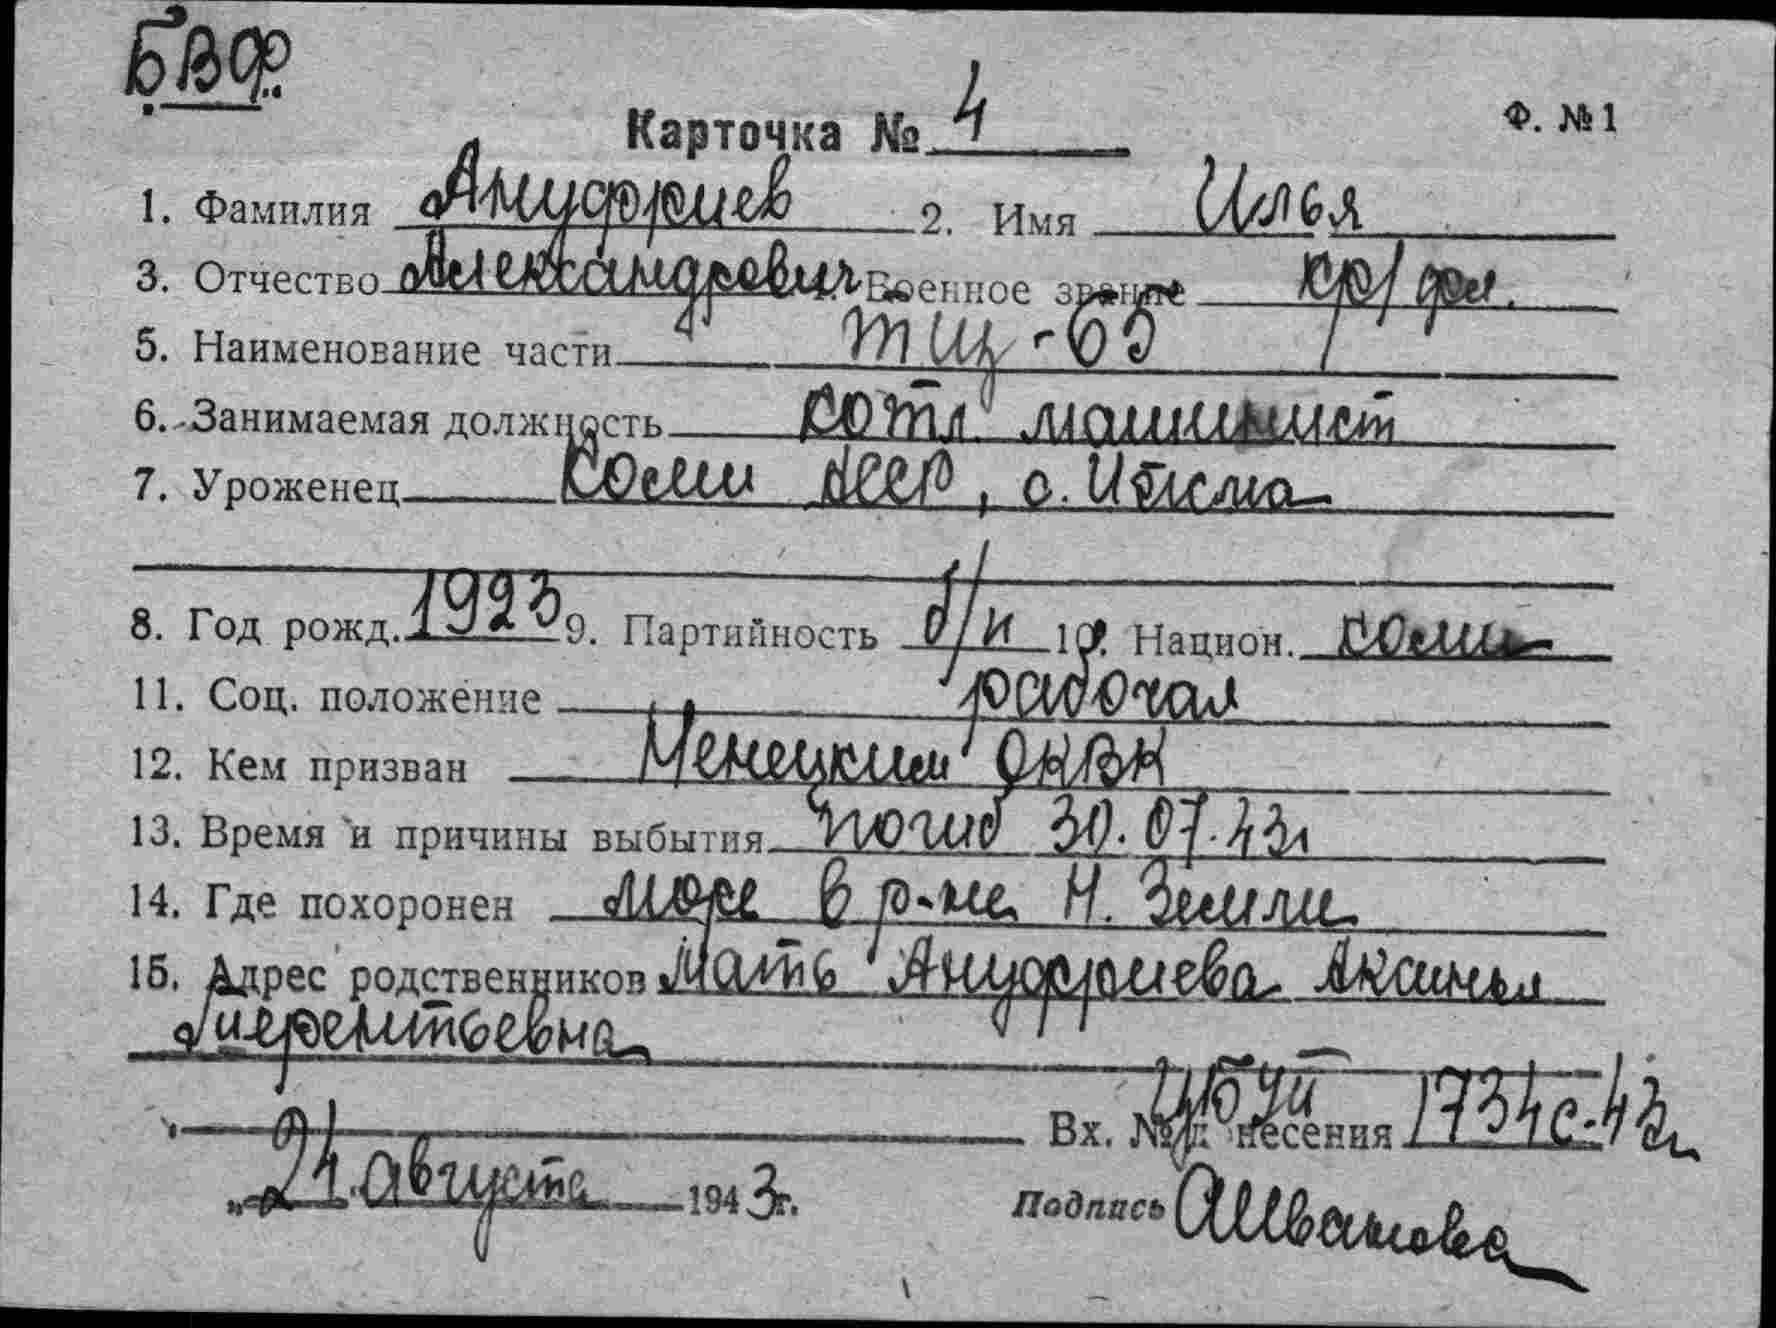 БВФ
Карточка № 4
Ф. № 1
1. Фамилия Ануфриев 2. Имя Илья
3. Отчество Александрович Военное звание кр/фл.
5. Наименование части ТЩ-65
6. Занимаемая должность котл. машинист
7. Уроженец Коми АССР, с. Ижма
8. Год рожд. 1923 9. Партийность б/п 10. Национ. коми
11. Соц. положение рабочая
12. Кем призван Ненецким ОКВК
13. Время и причины выбытия погиб 30.07.43г
14. Где похоронен море в р-не Н. Земли
15. Адрес родственников мать Ануфриева Аксинья
Лаврентьевна
Вх. № донесения 1734с-43г
„24 августа 1943г.
Подпись АИванова